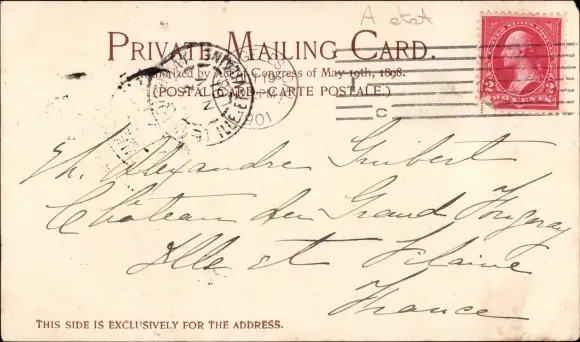 A etat
PRIVATE MAILING CARD.
Authorized by Act of Congress of May 19th, 1898.
(POSTAL CARD—CARTE POSTALE.)
1901
C
UNITED STATES POSTAGE
2 2
TWO CENTS
Alexandre Guibert
Château du Grand Fougeray
Ille et Vilaine
France
THIS SIDE IS EXCLUSIVELY FOR THE ADDRESS.